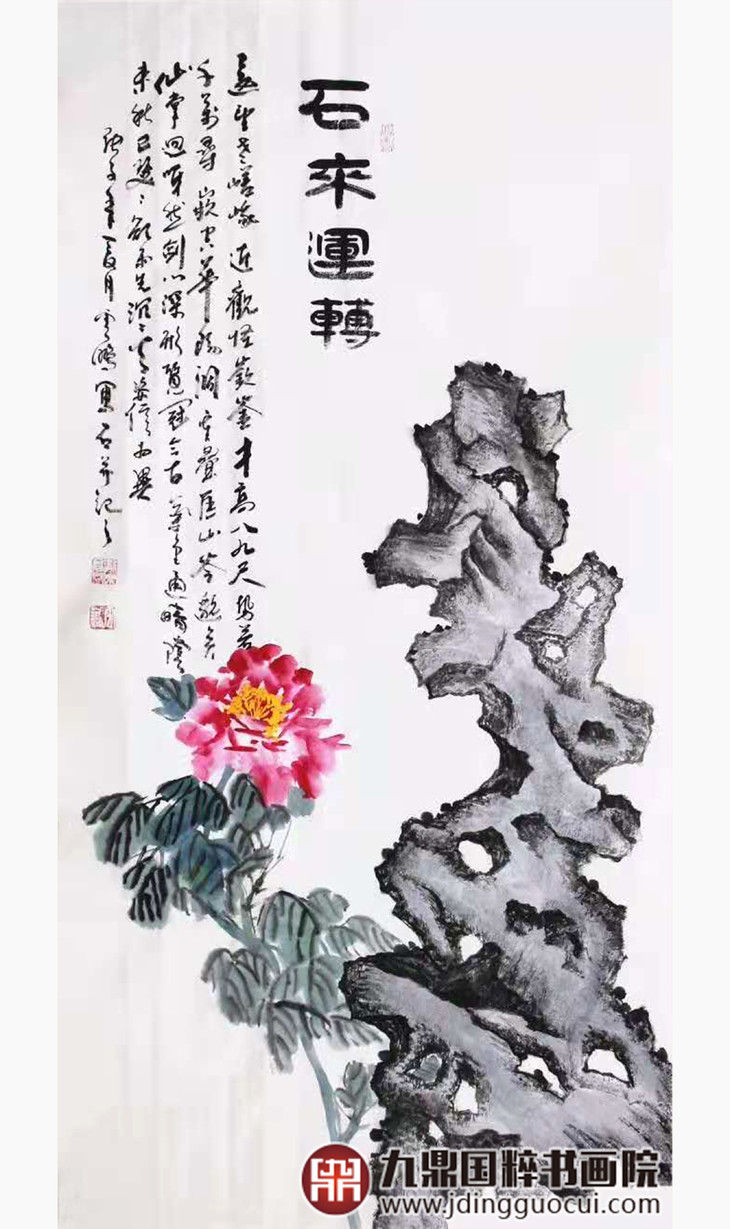 石來運轉
遠望老嵯峨近觀怪嶔崟才高八九尺勢若
千萬尋嵌空華陽洞重疊匡山岑邈矣
仙掌迥呀然劍門深形質冠今古氣色通晴陰
未秋已瑟々欲雨先沉々天姿信為異
庚子年夏月雲鵬寫石并記之
九鼎国粹书画院
www.jdingguocui.com